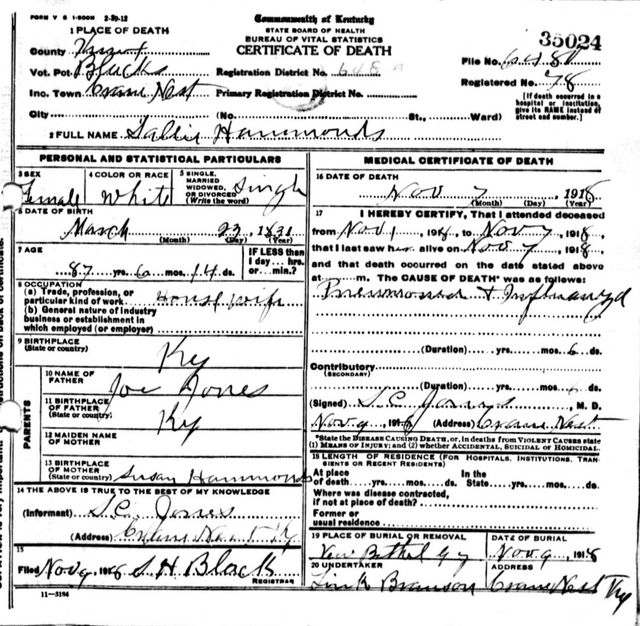 FORM V S 1-500M 2-29-12
Commonwealth of Kentucky
STATE BOARD OF HEALTH
BUREAU OF VITAL STATISTICS
CERTIFICATE OF DEATH
35024
1 PLACE OF DEATH
County Knox
Vot. Pct Blacks
Inc. Town Crane Nest
City
Registration District No.
Primary Registration District No.
(No. St., Ward)
File No.
Registered No. 78
[If death occurred in a hospital or institution, give its NAME instead of street and number.]
2 FULL NAME Sallie Hammonds
PERSONAL AND STATISTICAL PARTICULARS
3 SEX
Female
4 COLOR OR RACE
White
5 SINGLE, MARRIED WIDOWED, OR DIVORCED (Write the word)
Single
6 DATE OF BIRTH
March 23, 1831
(Month) (Day) (Year)
7 AGE
87 yrs. 6 mos. 14 ds.
IF LESS than 1 day... hrs. or min.?
8 OCCUPATION
(a) Trade, profession, or particular kind of work House wife
(b) General nature of industry business or establishment in which employed (or employer)
9 BIRTHPLACE
(State or country) Ky
PARENTS
10 NAME OF FATHER Joe Jones
11 BIRTHPLACE OF FATHER (State or country) Ky
12 MAIDEN NAME OF MOTHER
13 BIRTHPLACE OF MOTHER (State or country) Susan Hammonds
14 THE ABOVE IS TRUE TO THE BEST OF MY KNOWLEDGE
(Informant) S.C. Jones
(Address) Crane Nest Ky
15
Filed Nov 9, 1918 S H Black
REGISTRAR
11-3184
MEDICAL CERTIFICATE OF DEATH
16 DATE OF DEATH
Nov 7, 1918
(Month) (Day) (Year)
17 I HEREBY CERTIFY, That I attended deceased
from Nov 1 1918, to Nov 7, 1918,
that I last saw her alive on Nov 7, 1918
and that death occurred on the date stated above
at m. The CAUSE OF DEATH* was as follows:
Pneumonia &
(Duration) yrs. mos. 6 ds.
Contributory
(SECONDARY)
(Duration) yrs. mos. ds.
(Signed) S.C. Jones, M. D.
Nov 9 1918 (Address) Crane Nest
*State the DISEASE CAUSING DEATH, or, in deaths from VIOLENT CAUSES state (1) MEANS OF INJURY; and (2) whether ACCIDENTAL, SUICIDAL or HOMICIDAL.
18 LENGTH OF RESIDENCE (FOR HOSPITALS, INSTITUTIONS, TRANSIENTS OR RECENT RESIDENTS)
At place of death yrs. mos. ds. In the State yrs. mos. ds.
Where was disease contracted, if not at place of death?
Former or usual residence
19 PLACE OF BURIAL OR REMOVAL
New Bethel
DATE OF BURIAL
Nov 9, 1918
20 UNDERTAKER
Link Branson
ADDRESS
Crane Nest Ky